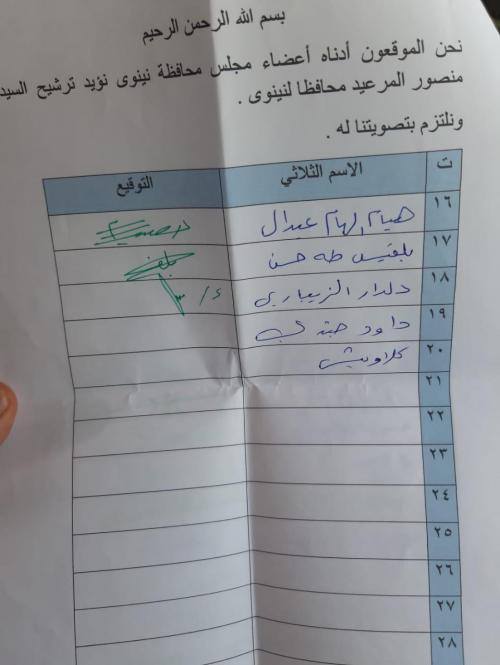 بسم الله الرحمن الرحيم
نحن الموقعون أدناه أعضاء مجلس محافظة نينوى نؤيد ترشيح السيد
منصور المرعيد محافظا لنينوى .
ونلتزم بتصويتنا له .
ت الاسم الثلاثي التوقيع
١٦ هيام الهام عبدال
١٧ بلقيس طه حسن
١٨ دلدار الزيباري
١٩ داود
٢٠ كلاويش
٢١
٢٢
٢٣
٢٤
٢٥
٢٦
٢٧
٢٨